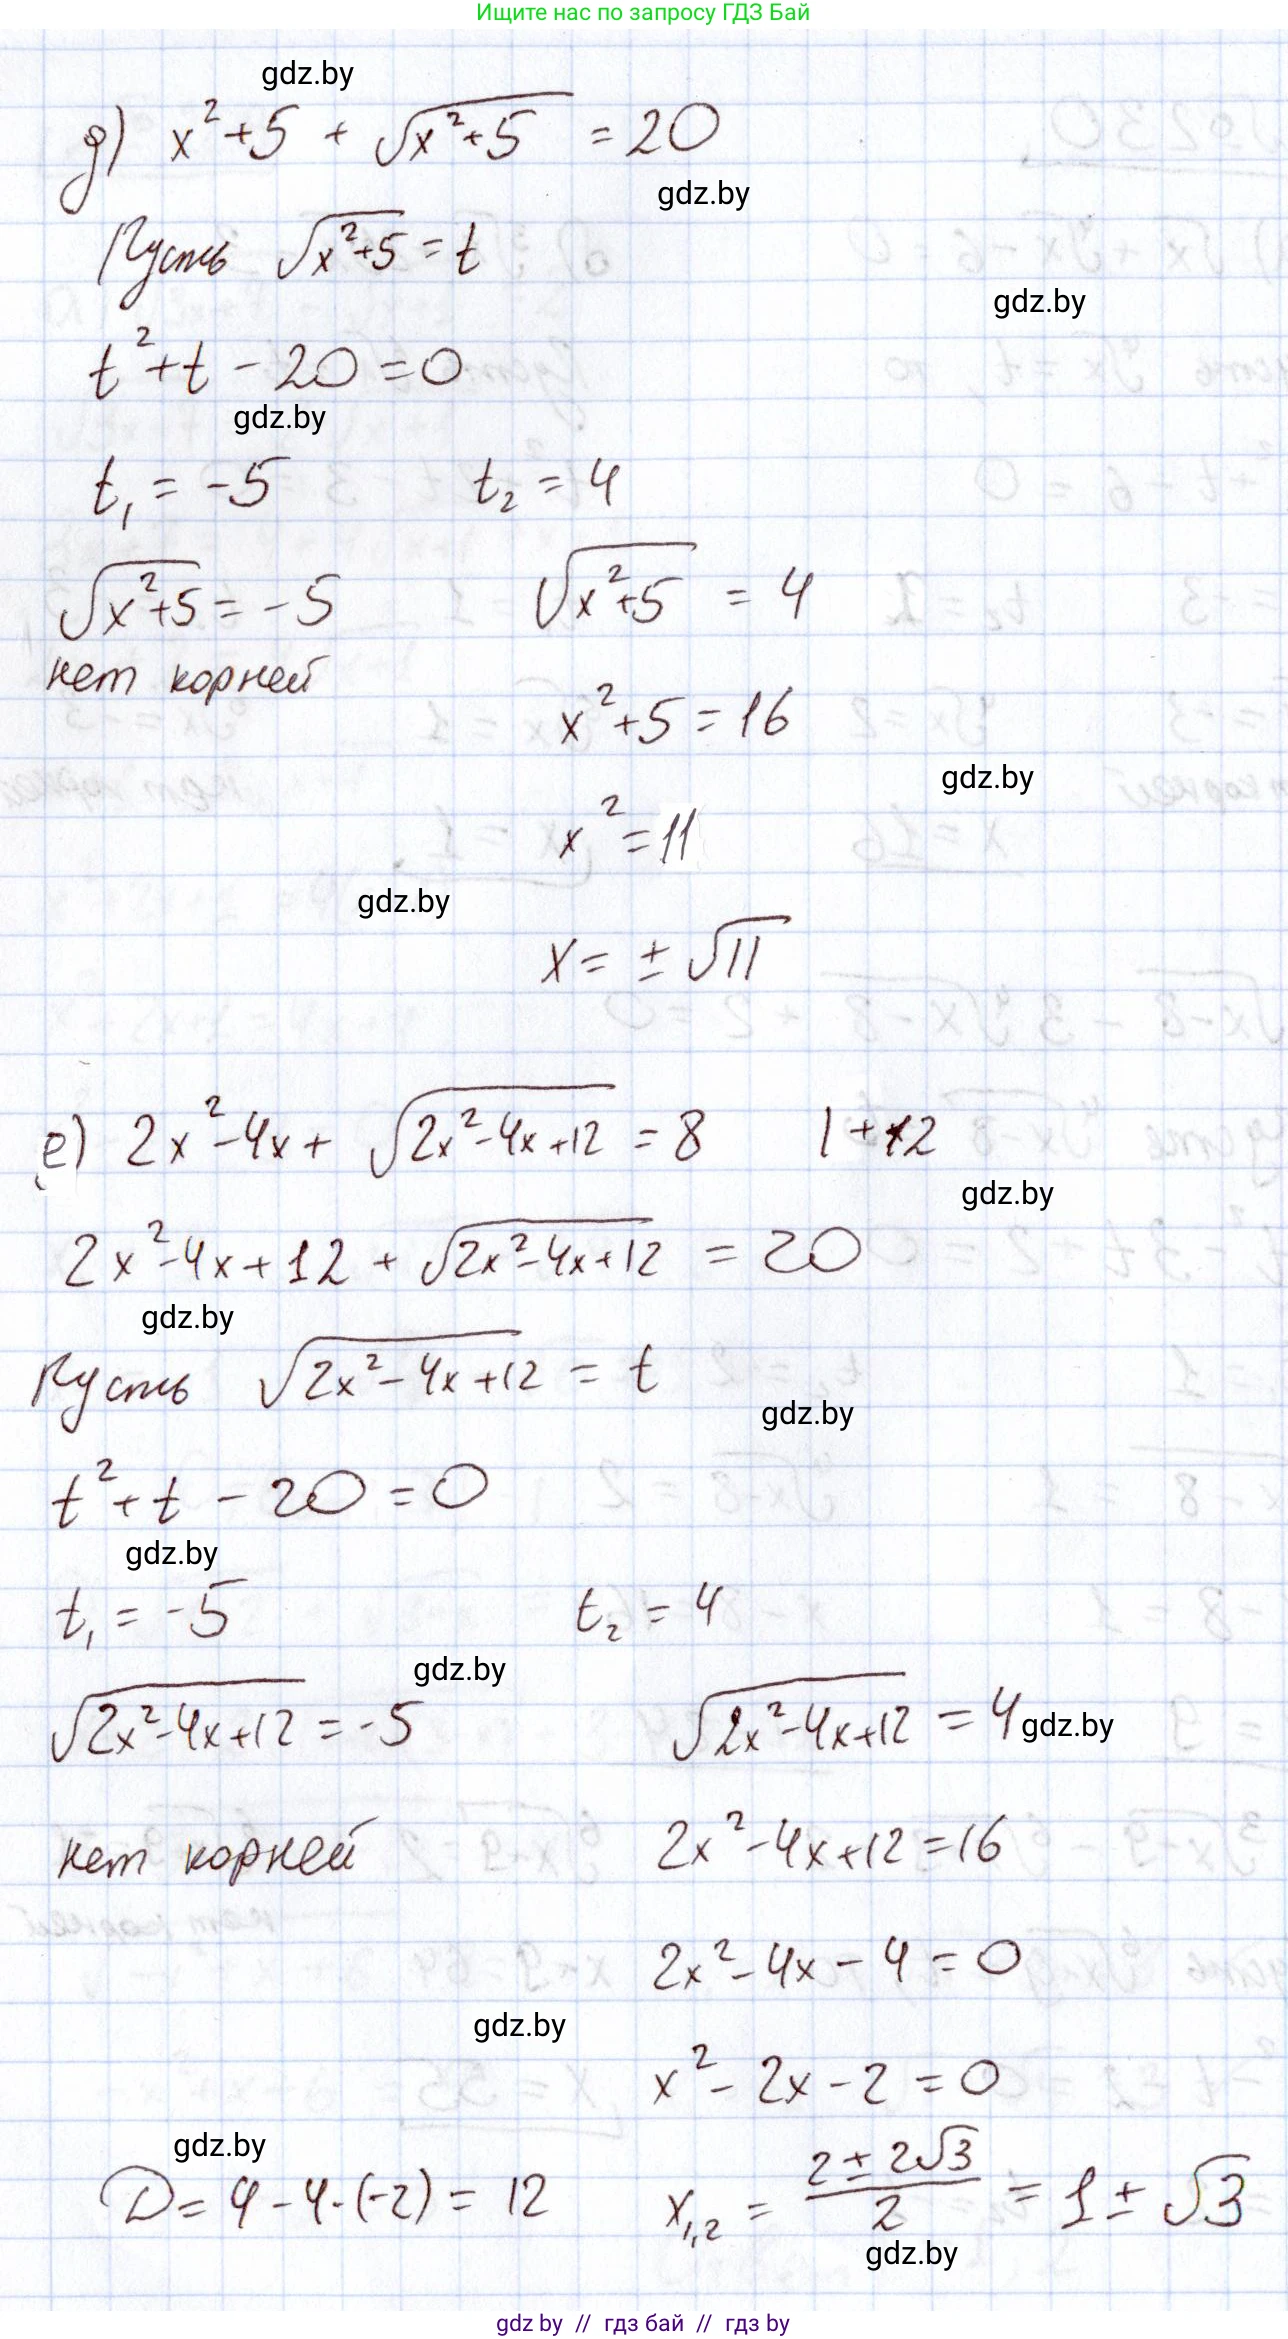 Ищите нас по запросу ГДЗ Бай
gdz.by
д) x²+5 + √(x²+5) = 20
gdz.by
Пусть √(x²+5) = t
gdz.by
t²+t - 20 = 0
gdz.by
t₁ = -5 t₂ = 4
√(x²+5) = -5 √(x²+5) = 4
нет корней
x²+5 = 16
gdz.by
x² = 11
gdz.by
x = ± √11
е) 2x²-4x+ √(2x²-4x+12) = 8 | +12
gdz.by
2x²-4x+12 + √(2x²-4x+12) = 20
gdz.by
Пусть √(2x²-4x+12) = t
gdz.by
t²+t - 20 = 0
gdz.by
t₁ = -5 t₂ = 4
gdz.by
√(2x²-4x+12) = -5 √(2x²-4x+12) = 4
gdz.by
нет корней 2x²-4x+12 = 16
2x²-4x - 4 = 0
gdz.by
x² - 2x - 2 = 0
gdz.by
D = 4 - 4·(-2) = 12 x₁,₂ = (2 ± 2√3)/2 = 1 ± √3
gdz.by
gdz by // гдз бай // гдз by